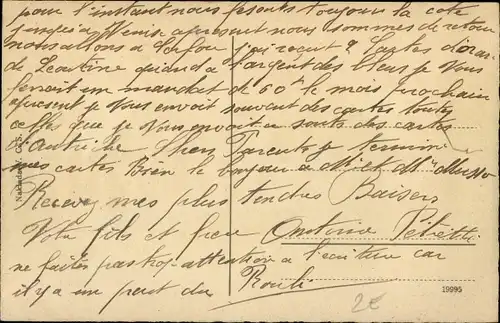 pour l'instant nous fesons toujour la cote
jusqe a apresent nous sommes de retour
nous allons a j'ai reçut 2 Cartes
de Leontine quand a l'argent des bleus je vous
ferait un mandat de 60 le mois prochain
apresent je vous envoit souvent des cartes toutes
celles que je vous envoit sont des cartes
d'Autriche Chers Parents je termine
mes cartes bien le bonjour a Mr et Me
Recevez mes plus tendres Baisers
Votre fils et frere Antoine
ne faites pas trop attention a l'ecriture car
il y a un peut du Roulis
2€
19995